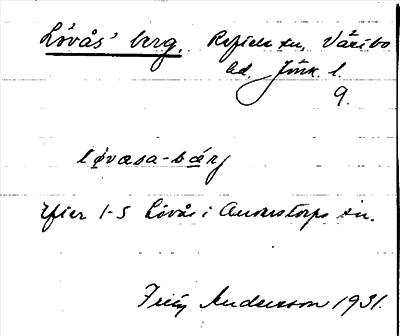 Lövås' berg. Reftele sn, Västbo
hd. Jönk. l.
9.
løvasa-bärj
Efter 1-5 Lövås i Anderstorps sn.
Fritz Anderson 1931.